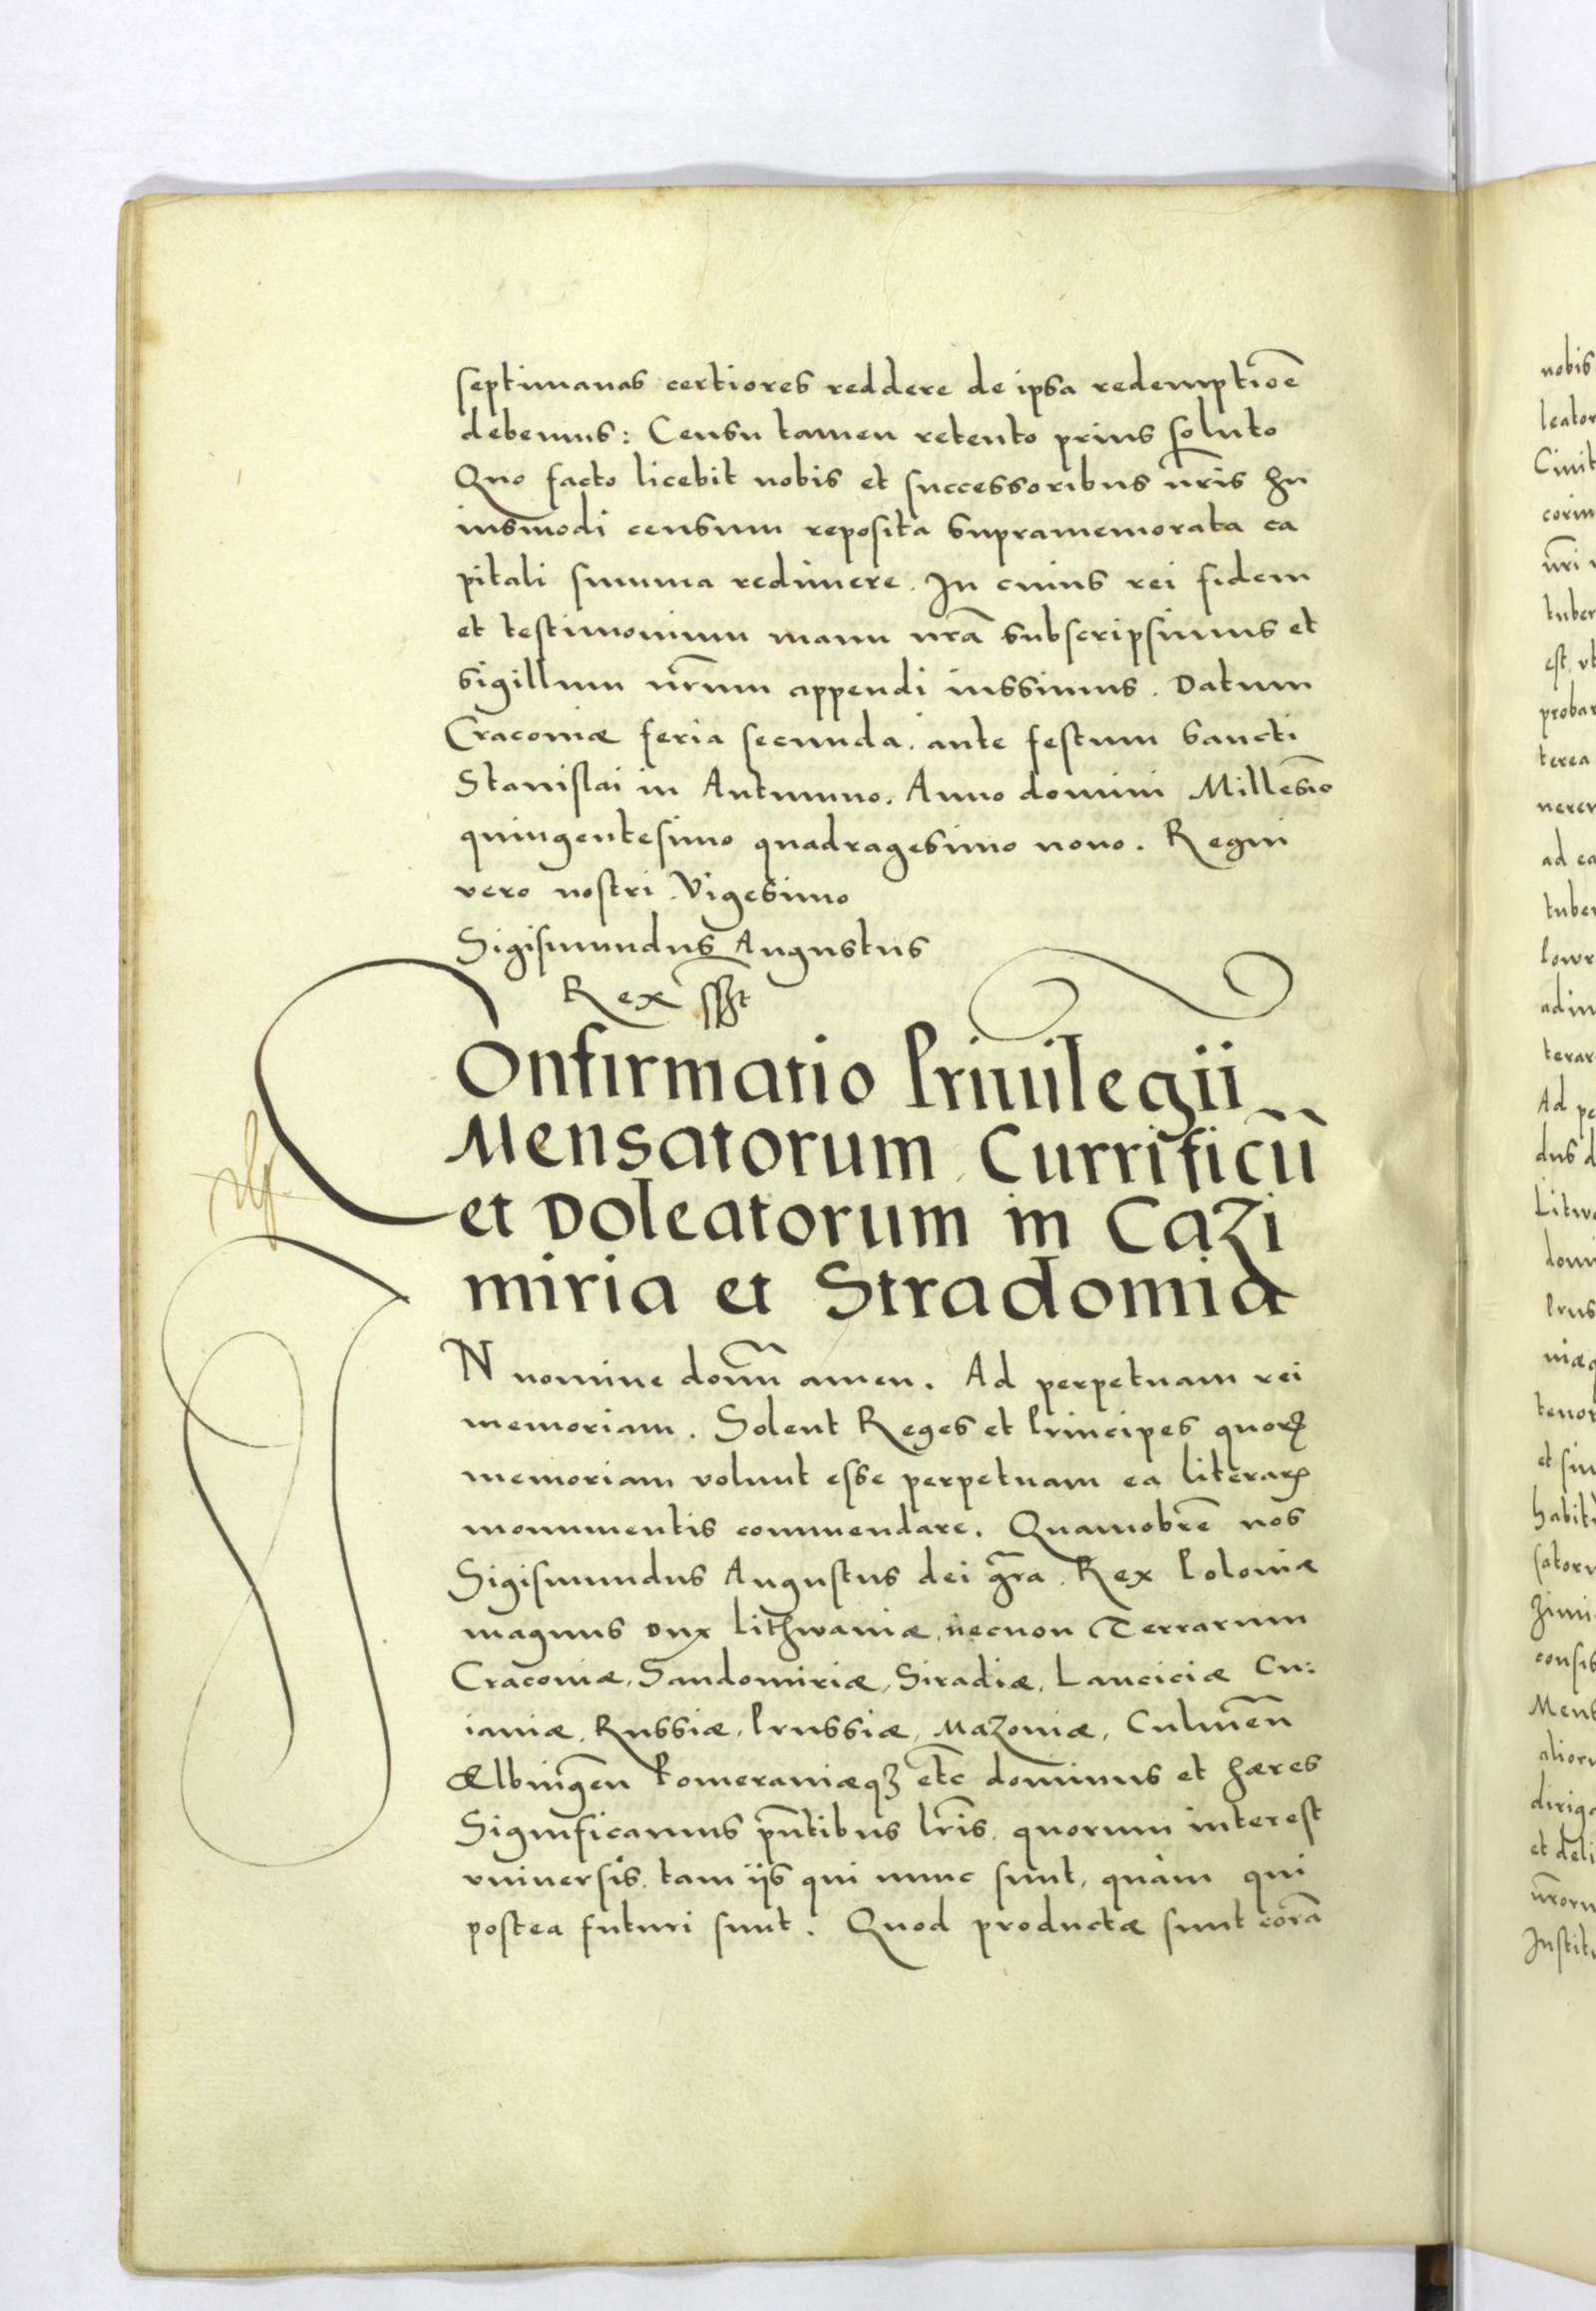 septimanas certiores reddere de ipsa redemptiōe
debemus: Censu tamen retento prius soluto
Quo facto licebit nobis et successoribus nr̄is hu
iusmodi censum reposita supramemorata ca
pitali summa redimere. In cuius rei fidem
et testimonium manu nrā subscripsimus et
sigillum nr̄um appendi iussimus. Datum
Cracoviæ feria secunda. ante festum sancti
Stanislai in Autumno. Anno domini Millesīo
quingentesimo quadragesimo nono. Regni
vero nostri Vigesimo
Sigismundus Augustus
Rex sſt
Confirmatio Priuilegii
Mensatorum Currificū
et Doleatorum in Cazi
miria et Stradomia
IN nomine domī amen. Ad perpetuam rei
memoriam. Solent Reges et Principes quoꝝ
memoriam volunt esse perpetuam ea literaꝝ
monumentis commendare. Quamobrē nos
Sigismundus Augustus dei gr̄a Rex Poloniæ
magnus Dux Lithwaniæ, necnon Terrarum
Cracoviæ, Sandomiriæ, Siradiæ, Lanciciæ Cu:
iaviæ, Russiæ, Prussiæ, Mazoviæ, Culmēn
Ælbingēn Pomeraniæqꝫ etc̄ dominus et hæres
Significamus pn̄tibus lr̄is, quorum interest
vniversis, tam ijs qui nunc sunt, quàm qui
postea futuri sunt. Quod productæ sunt corā